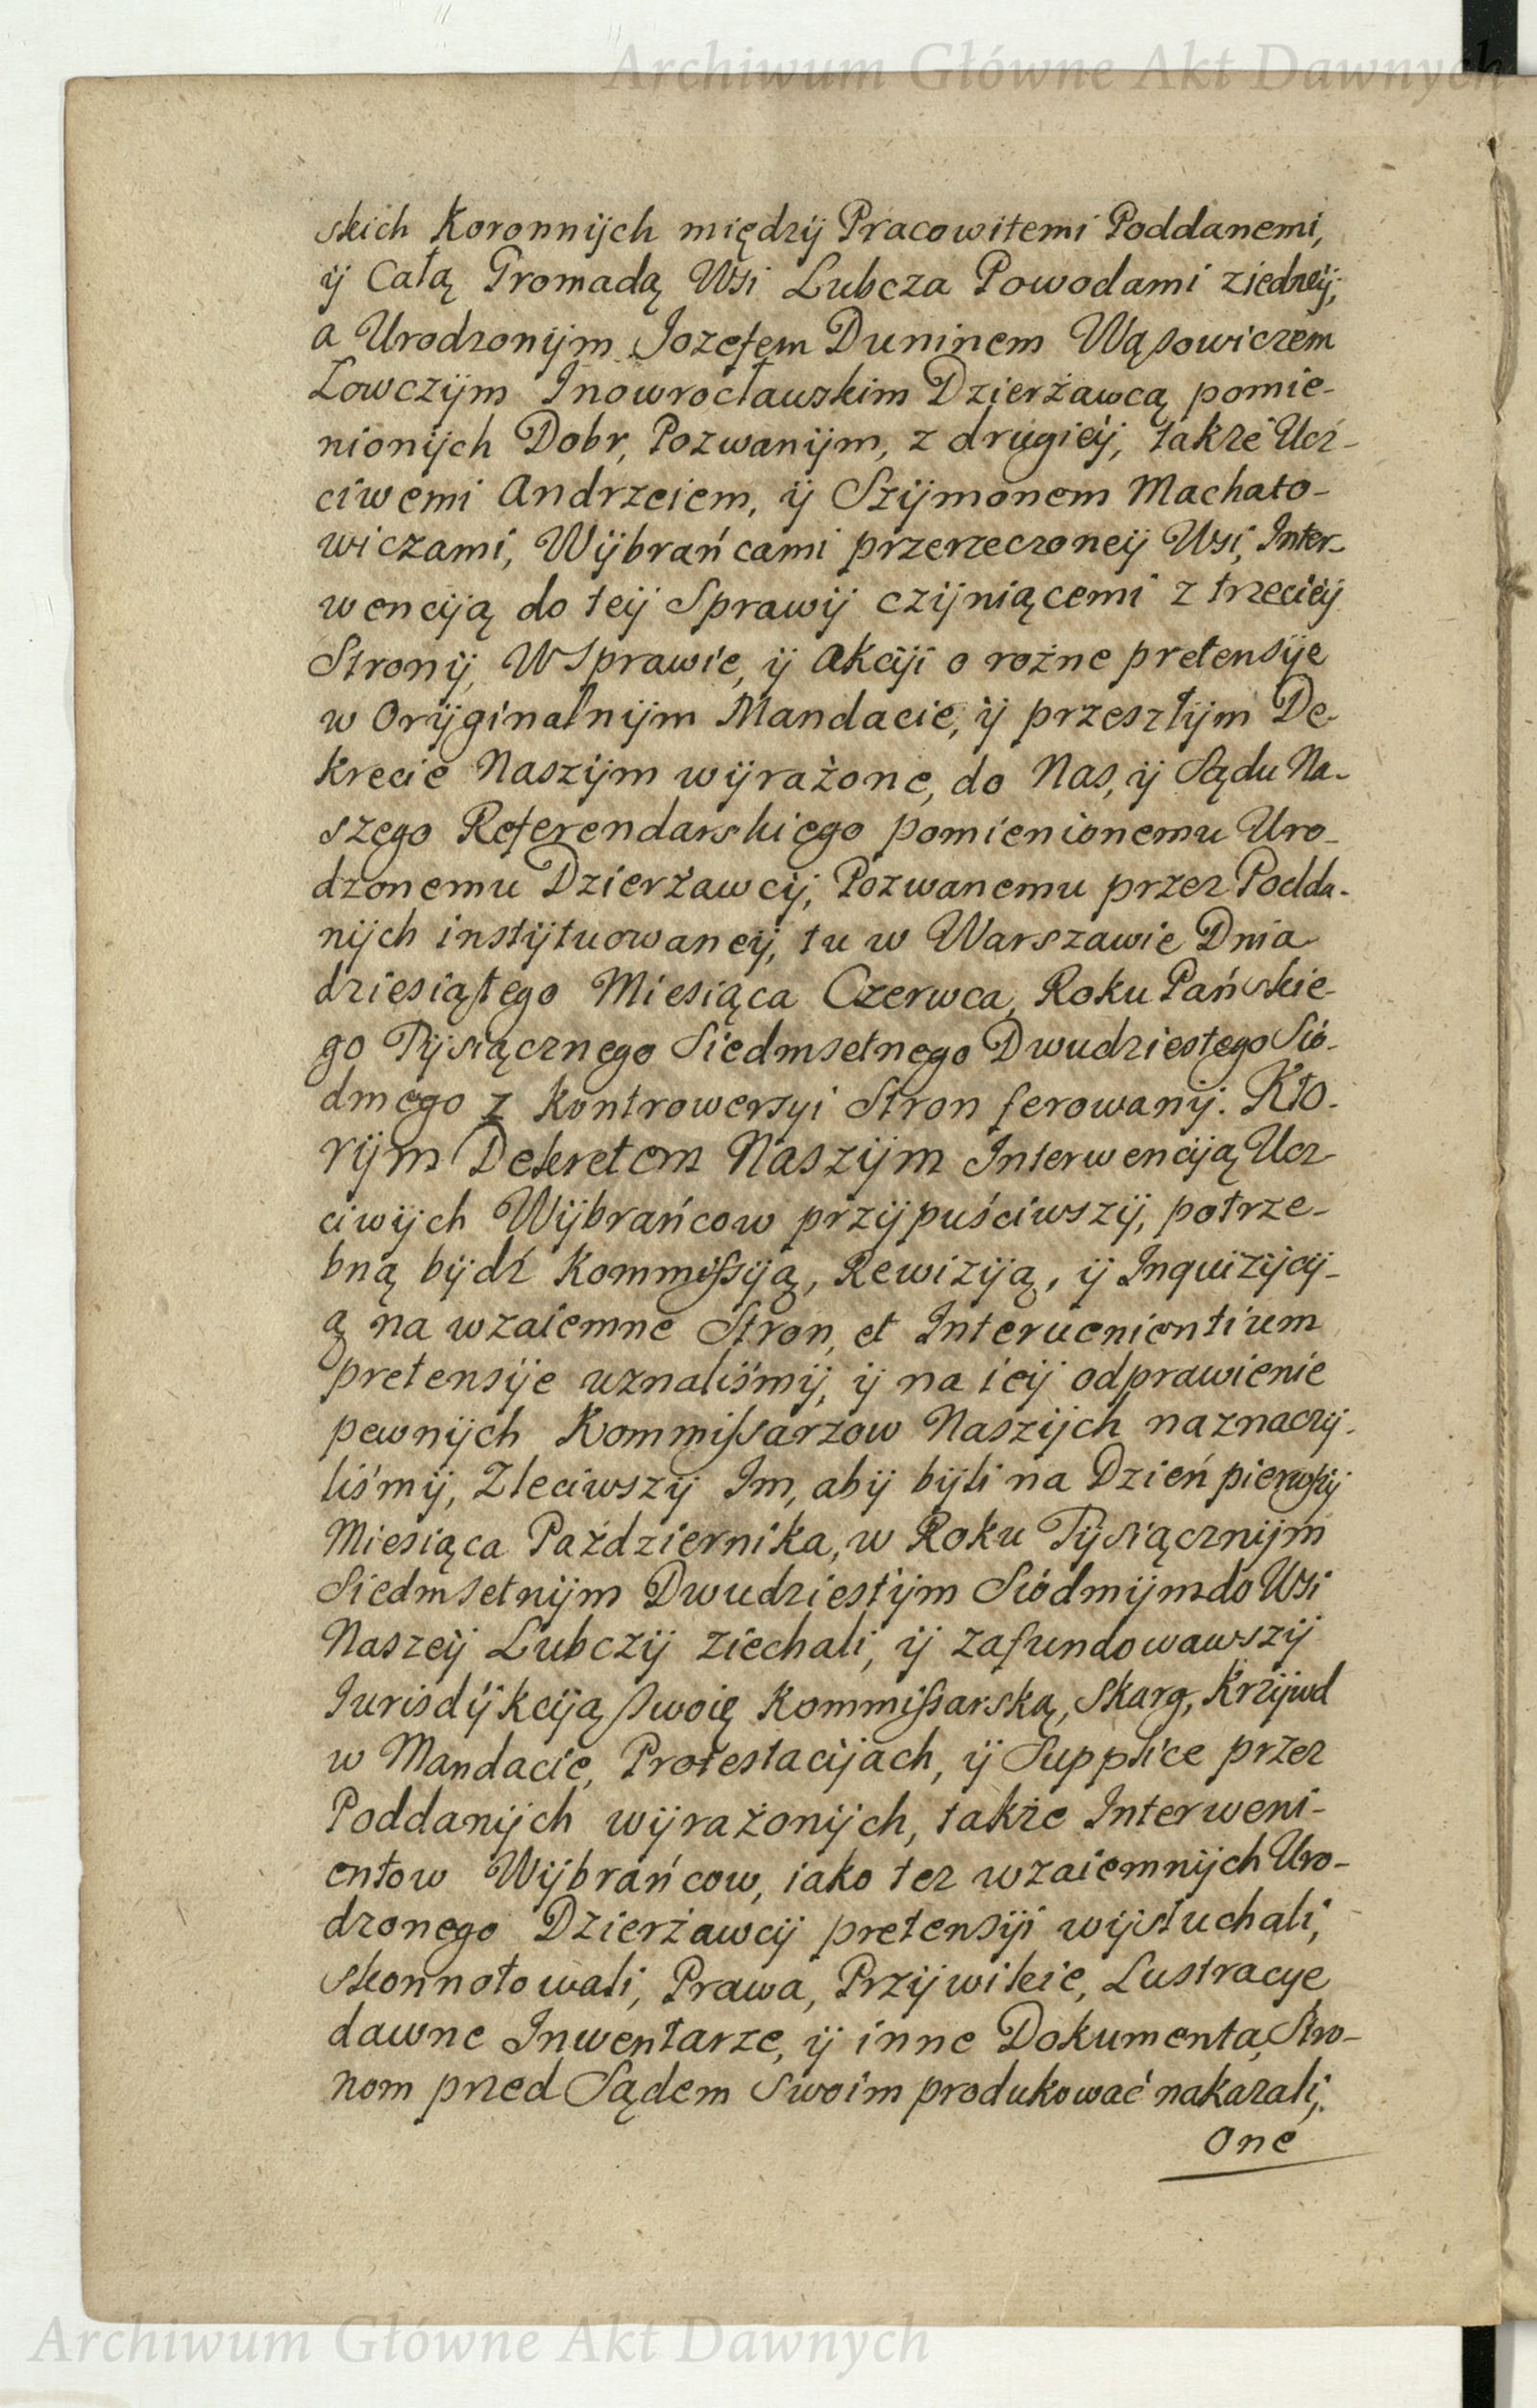 Archiwum Główne Akt Dawnych
skich Koronnijch międzij Pracowitemi Poddanemi,
ij Całą Gromadą Wsi Lubcza Powodami ziedneij,
a Urodzonijm Jozefem Duninem Wąsowiczem
Łowczijm Inowrocławskim Dzierżawcą pomie-
nionijch Dobr, Pozwanijm, z drugieij, także Ucz-
ciwemi Andrzeiem, ij Szijmonem Machato-
wiczami, Wijbrańcami przerzeczoneij Wsi, Inter-
wenciją do teij Sprawij czijniącemi z trzecieij
Stronij, W Sprawie, ij Akciji o rożne pretensije
w Orijginalnijm Mandacie, ij przeszłijm De-
krecie Naszijm wijrażone, do Nas, ij Sądu Na-
szego Referendarskiego pomienionemu Uro-
dzonemu Dzierżawcij, Pozwanemu przez Podda-
nijch instijtuowaneij, tu w Warszawie Dnia
dziesiątego Miesiąca Czerwca, Roku Pańskie-
go Tijsiącznego Siedmsetnego Dwudziestego Sió-
dmego z kontrowersyi Stron ferowanij. Kto-
rijm Dekretem Naszijm Interwenciją Ucz-
ciwijch Wijbrańcow przijpuściwszij, potrze-
bną bijdź Kommissiją, Rewiziją, ij Inquizijcij-
ą na wzaiemne Stron, et Interuenientium
pretensije uznaliśmij, ij na ieij odprawienie
pewnijch Kommissarzow Naszijch naznaczij-
liśmij, Zleciwszij Im, abij bijli na Dzień pierwszij
Miesiąca Października, w Roku Tijsiącznijm
Siedmsetnijm Dwudziestijm Siódmijm do Wsi
Naszeij Lubczij ziechali, ij zafundowawszij
Iurisdijkciją swoię Kommissarską, Skarg, Krzijwd
w Mandacie, Protestacijach, ij Supplice przez
Poddanijch wijrażonijch, także Interweni-
entow Wijbrańcow, iako tez wzaiemnijch Uro-
dzonego Dzierżawcij pretensiji wijsłuchali,
skonnotowali, Prawa, Przijwileie, Lustracye
dawne Inwentarze, ij inne Dokumenta, Stro-
nom przed Sądem Swoim produkować nakazali,
One
Archiwum Główne Akt Dawnych